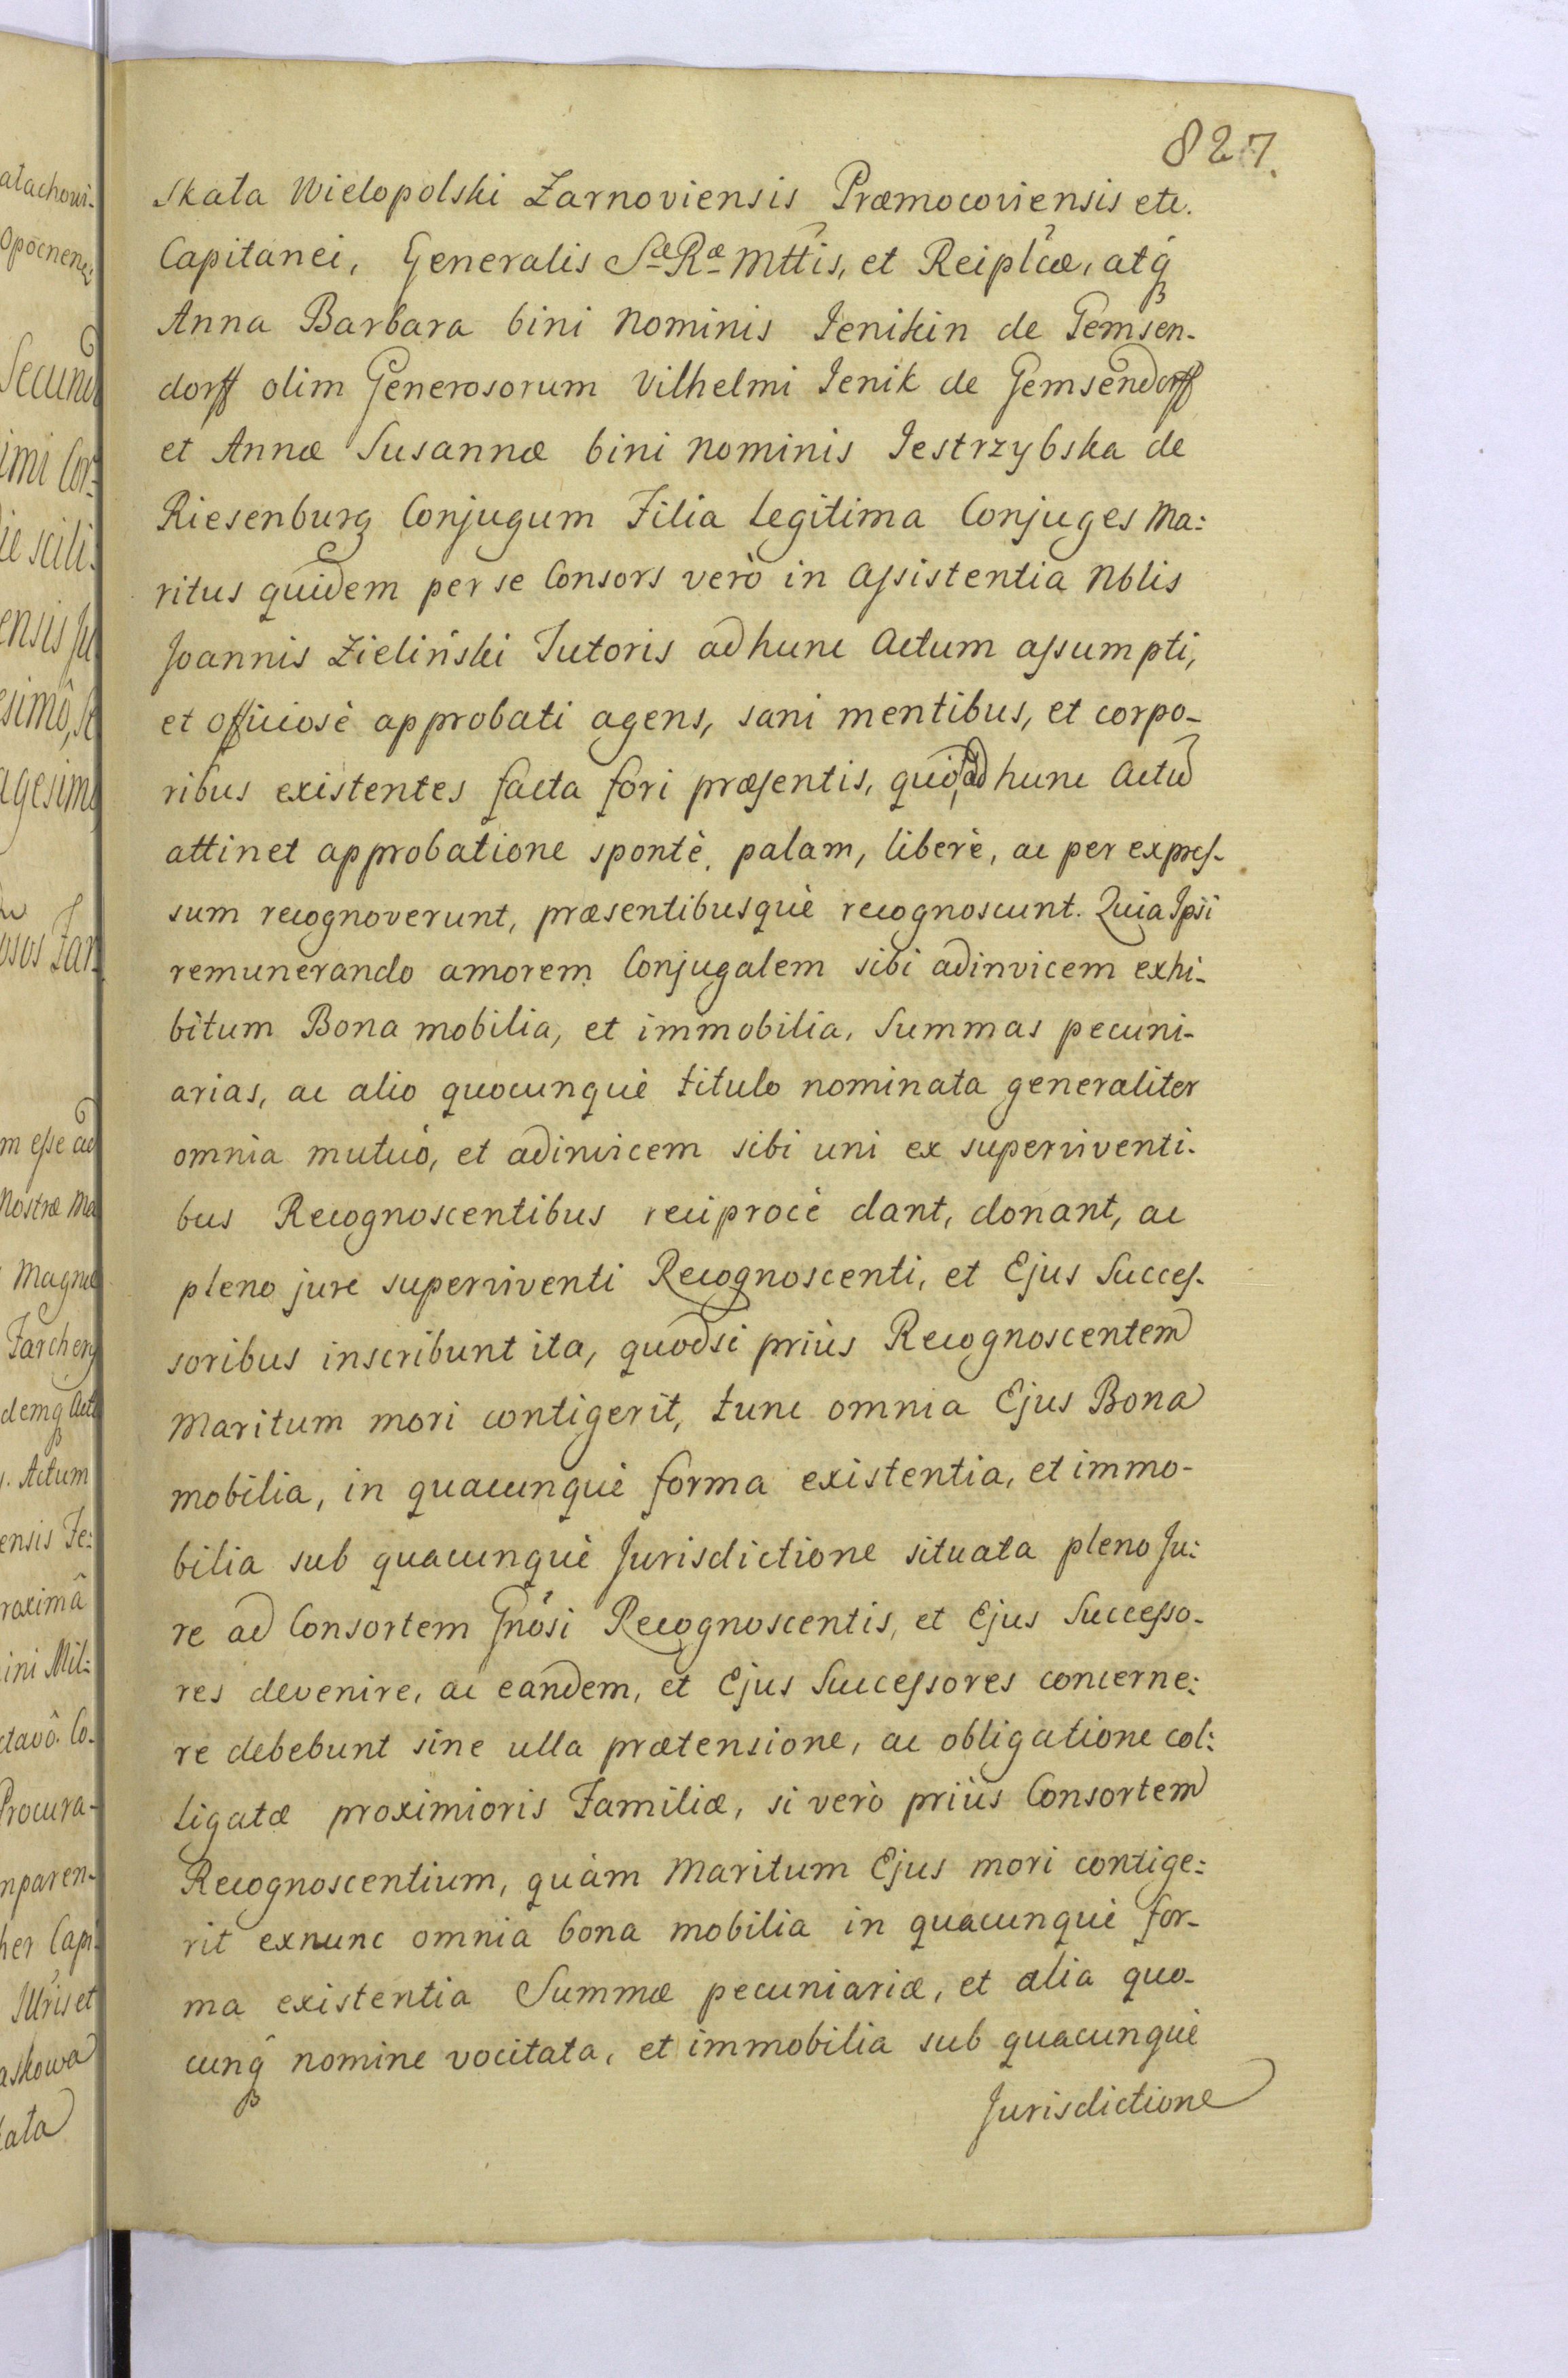 827.
Skała Wielopolski Żarnoviensis Præmocoviensis etc.
Capitanei, Generalis Sæ Ræ Mttis, et Reiplcæ, atq
Anna Barbara bini nominis Jenikin de Gemsen-
dorff olim Generosorum Vilhelmi Jenik de Gemsendorff
et Annæ Susannæ bini nominis Jestrzybska de
Riesenburg Conjugum Filia Legitima Conjuges Ma:
ritus quidem per se Consors verò in assistentia Nblis
Joannis Zieliński Tutoris ad hunc Actum assumpti,
et officiosè approbati agens, sani mentibus, et corpo-
ribus existentes facta fori præsentis, quo ad hunc Actu
attinet approbatione spontè, palam, liberè, ac per expres-
sum recognoverunt, præsentibusquè recognoscunt. Quia Ipsi
remunerando amorem Conjugalem sibi adinvicem exhi-
bitum Bona mobilia, et immobilia, Summas pecuni-
arias, ac alio quocunquè titulo nominata generaliter
omnia mutuò, et adinvicem sibi uni ex superviventi-
bus Recognoscentibus reciprocè dant, donant, ac
pleno jure superviventi Recognoscenti, et Ejus Succes-
soribus inscribunt ita, quodsi priùs Recognoscentem
Maritum mori contigerit, tunc omnia Ejus Bona
mobilia, in quacunquè forma existentia, et immo-
bilia sub quacunquè Jurisdictione situata pleno Ju:
re ad Consortem Gnosi Recognoscentis, et Ejus Successo-
res devenire, ac eandem, et Ejus Successores concerne:
re debebunt sine ulla prætensione, ac obligatione col:
ligatæ proximioris Familiæ, si verò priùs Consortem
Recognoscentium, quàm Maritum Ejus mori contige:
rit exnunc omnia bona mobilia in quacunquè for-
ma existentia Summæ pecuniariæ, et alia quo-
cunq nomine vocitata, et immobilia sub quacunquè
Jurisdictione